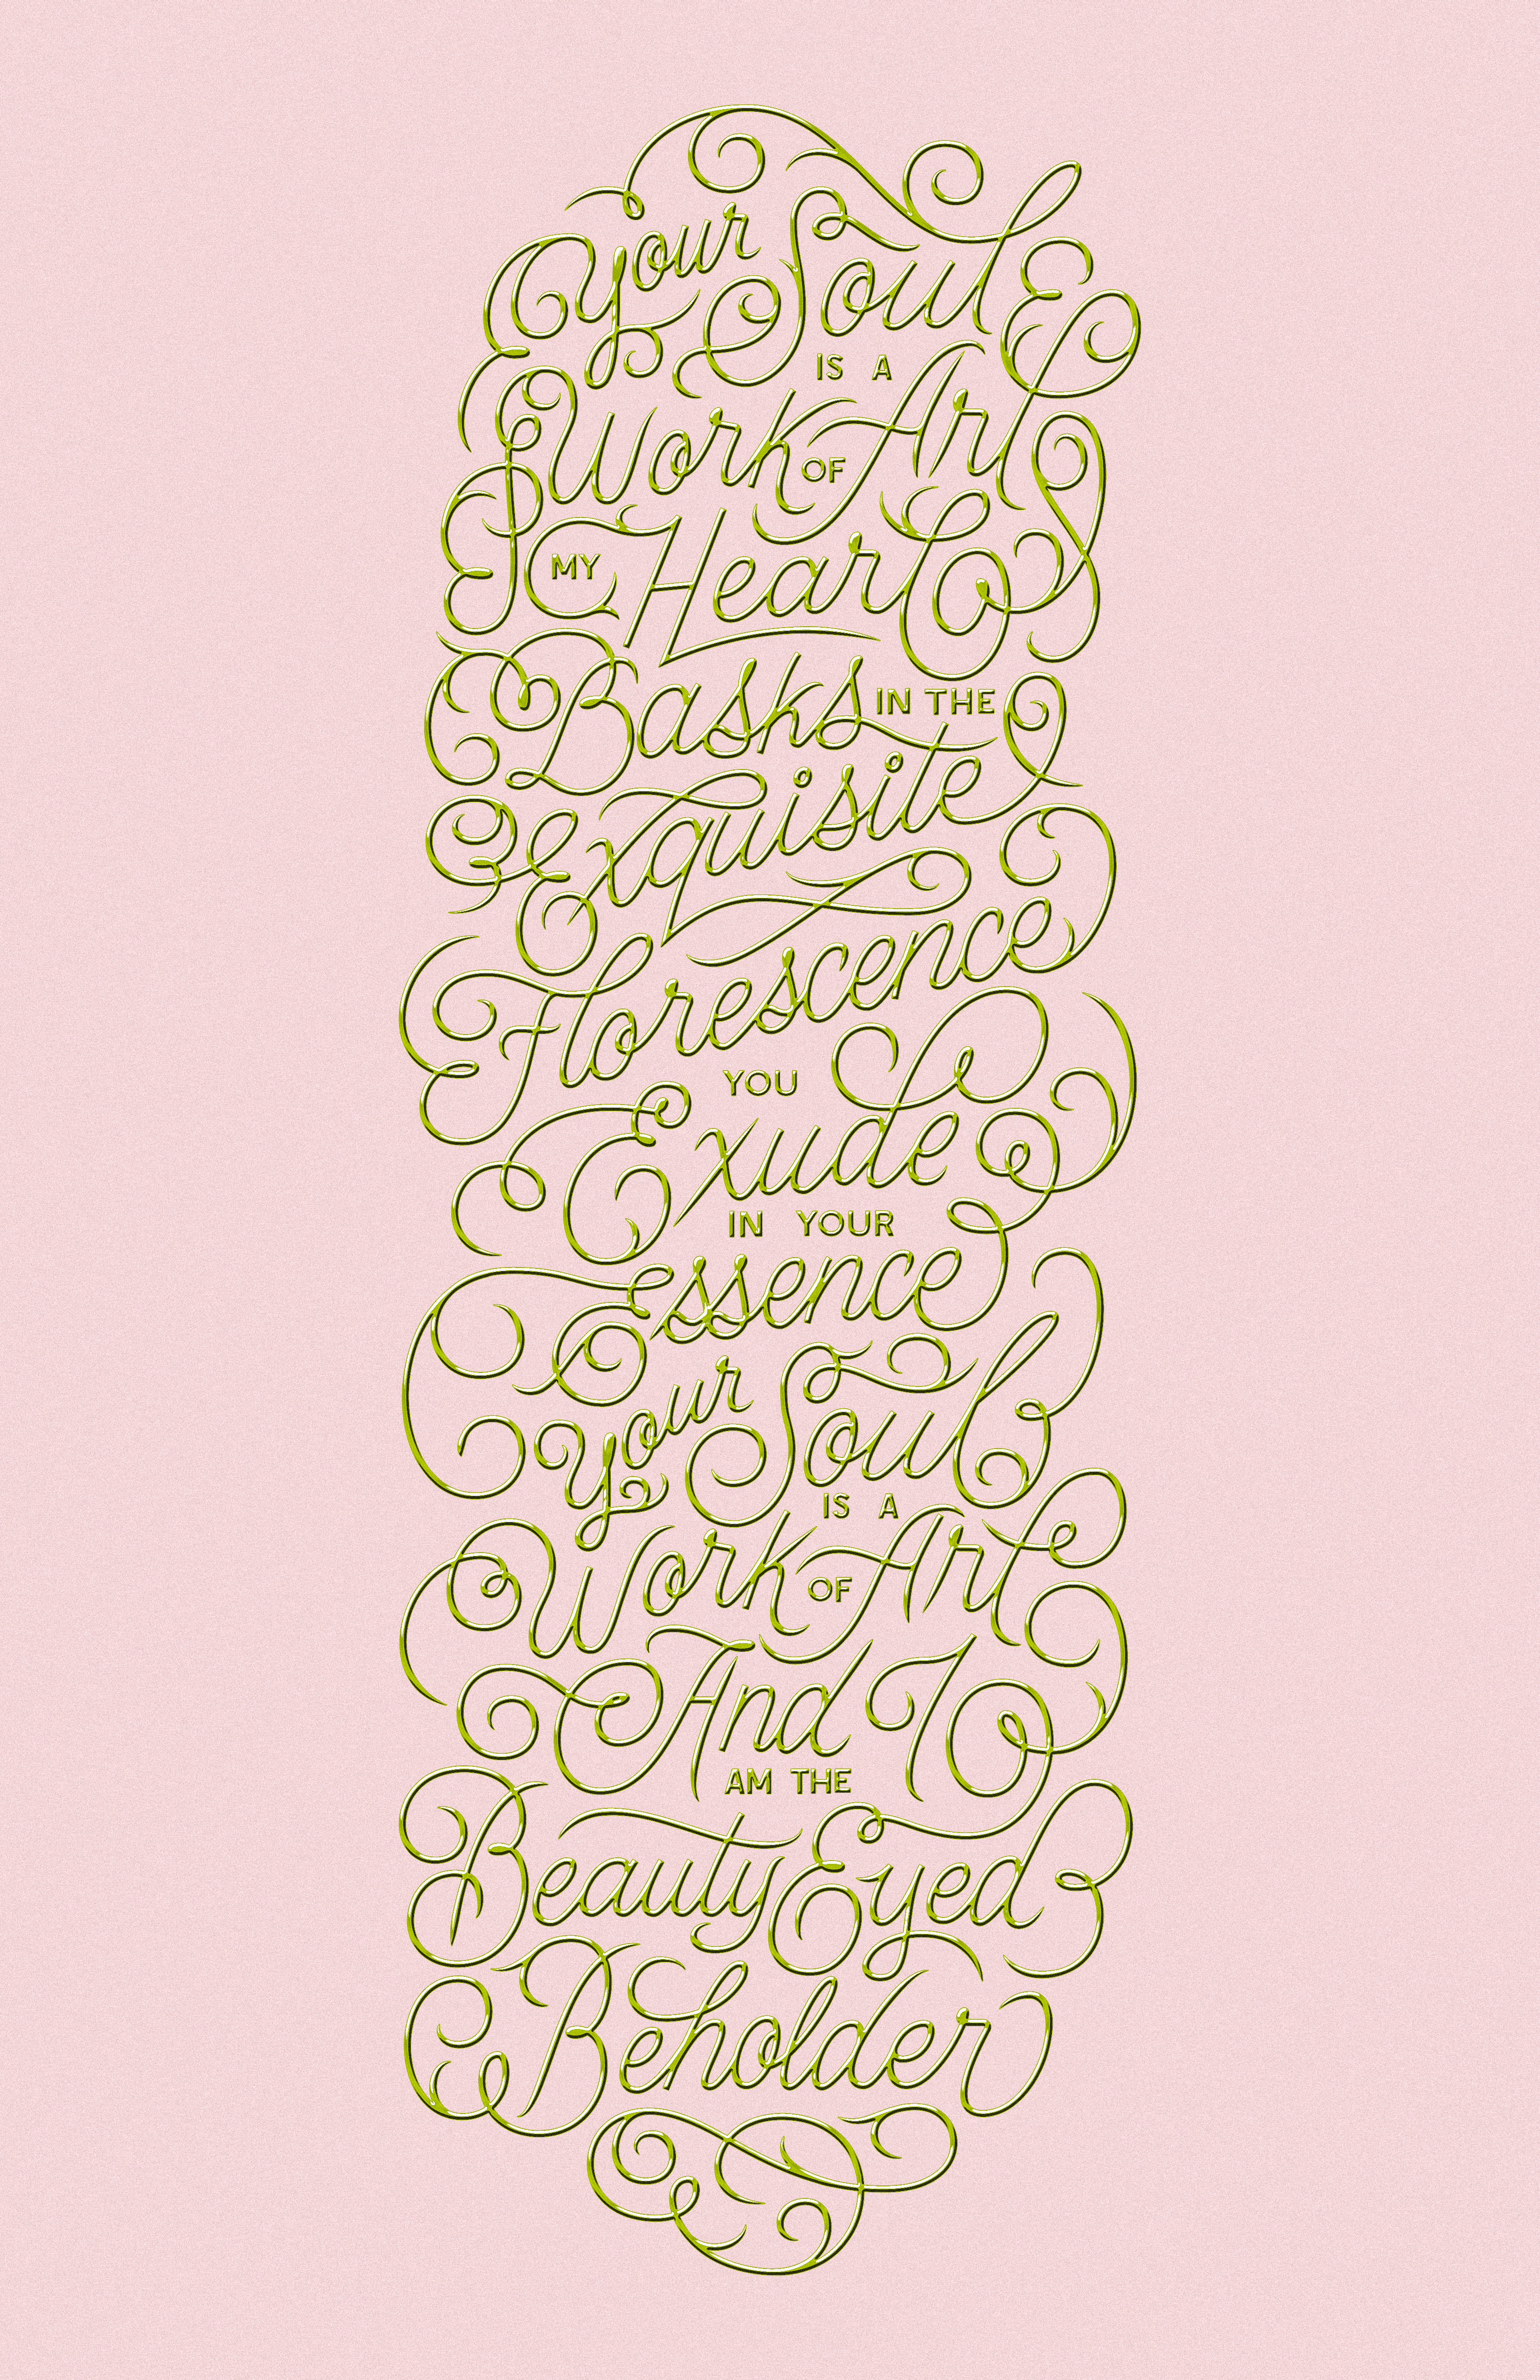 Your Soul
IS A
Work OF Art
MY Heart
Basks IN THE
Exquisite
Florescence
YOU
Exude
IN YOUR
Essence
Your Soul
IS A
Work OF Art
And I
AM THE
Beauty Eyed
Beholder